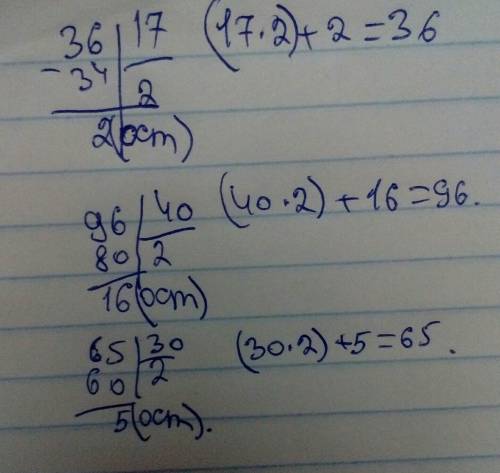 36 | 17 (17·2)+2=36
- 34 | 2
2(ост)
96 | 40 (40·2)+16=96.
80 | 2
16(ост)
65 | 30 (30·2)+5=65.
60 | 2
5(ост).